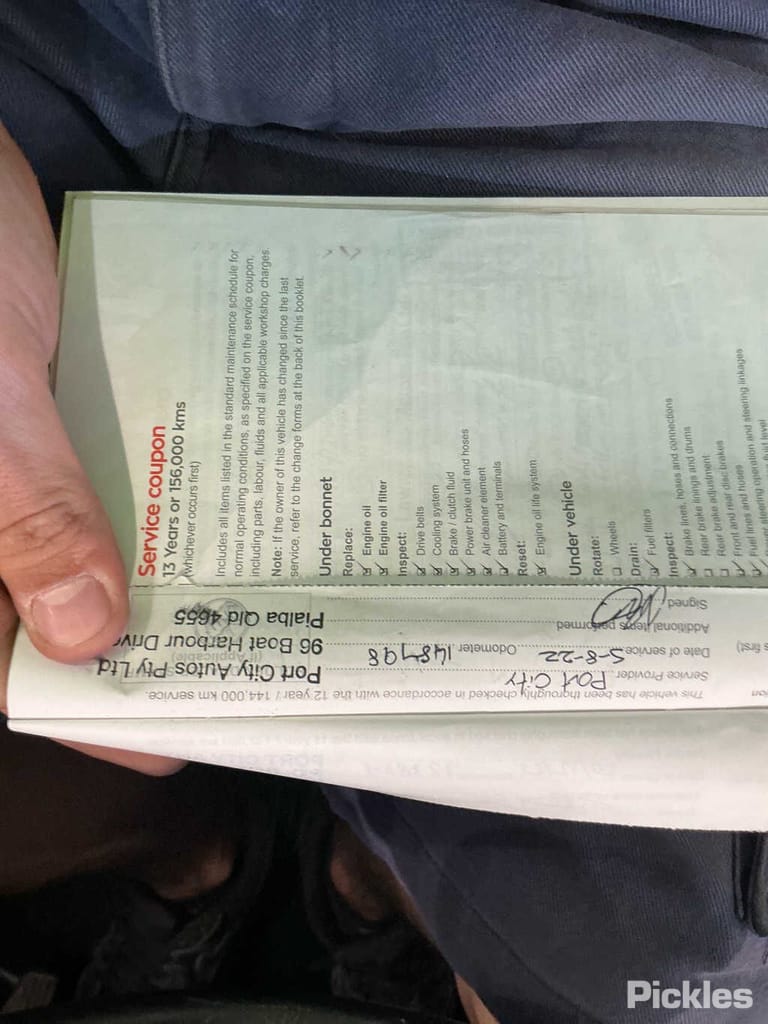 Service coupon
13 Years or 156,000 kms
(whichever occurs first)
Includes all items listed in the standard maintenance schedule for
normal operating conditions, as specified on the service coupon,
including parts, labour, fluids and all applicable workshop charges.
Note: If the owner of this vehicle has changed since the last
service, refer to the change forms at the back of this booklet.
Under bonnet
Replace:
Engine oil
Engine oil filter
Inspect:
Drive belts
Cooling system
Brake / clutch fluid
Power brake unit and hoses
Air cleaner element
Battery and terminals
Reset:
Engine oil life system
Under vehicle
Rotate:
Wheels
Drain:
Fuel filters
Inspect:
Brake lines, hoses and connections
Rear brake linings and drums
Rear brake adjustment
Front and rear disc brakes
Fuel lines and hoses
Power steering operation and steering linkages
fluid level
This vehicle has been thoroughly checked in accordance with the 12 year / 144,000 km service.
Service Provider Port City
Date of service 5-8-22 Odometer 148798
Additional items performed
Signed
(If Applicable)
Port City Autos Pty Ltd
96 Boat Harbour Drive
Pialba Qld 4655
s first)
Pickles